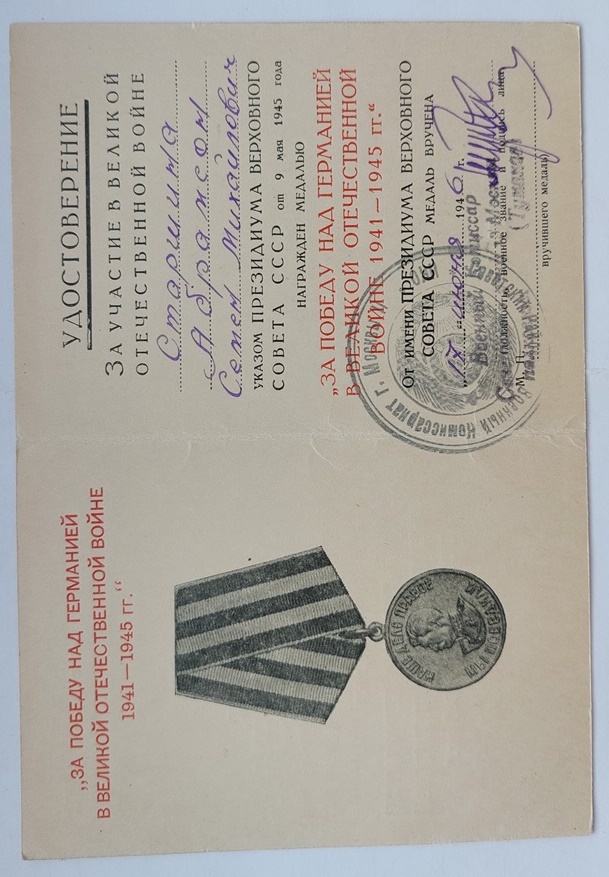 „ЗА ПОБЕДУ НАД ГЕРМАНИЕЙ
В ВЕЛИКОЙ ОТЕЧЕСТВЕННОЙ ВОЙНЕ
1941—1945 гг.“
НАШЕ ДЕЛО ПРАВОЕ
МЫ ПОБЕДИЛИ
УДОСТОВЕРЕНИЕ
ЗА УЧАСТИЕ В ВЕЛИКОЙ
ОТЕЧЕСТВЕННОЙ ВОЙНЕ
Старшина
Абрамсон
Семен Михайлович
УКАЗОМ ПРЕЗИДИУМА ВЕРХОВНОГО
СОВЕТА СССР от 9 мая 1945 года
НАГРАЖДЕН МЕДАЛЬЮ
„ЗА ПОБЕДУ НАД ГЕРМАНИЕЙ
В ВЕЛИКОЙ ОТЕЧЕСТВЕННОЙ
ВОЙНЕ 1941—1945 гг.“
ОТ ИМЕНИ ПРЕЗИДИУМА ВЕРХОВНОГО
СОВЕТА СССР МЕДАЛЬ ВРУЧЕНА
17 июля 1946 г.
Военный Комиссар
М. П. (должность, военное звание и подпись лица,
вручившего медаль)
Военный Комиссариат г. Москвы